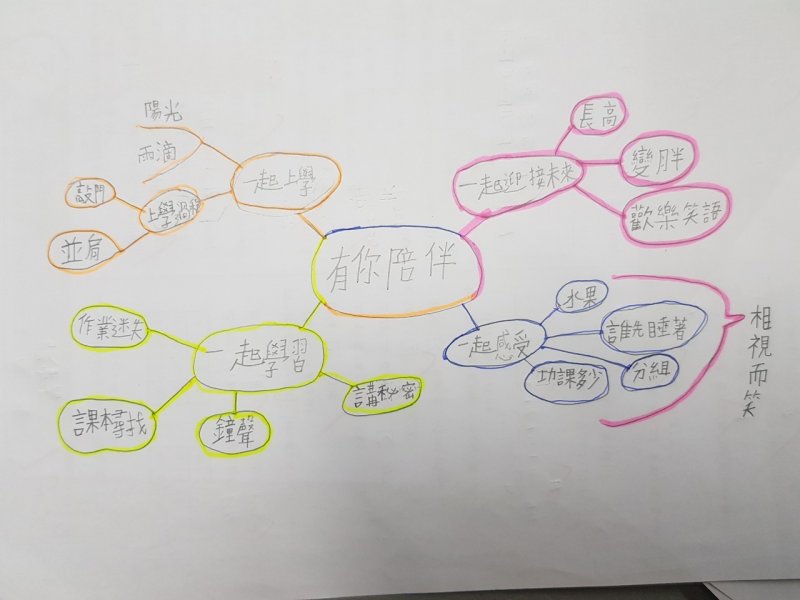 有你陪伴
一起上學
陽光
雨滴
上學過程
敲門
並肩
一起迎接未來
長高
變胖
歡樂笑語
一起學習
作業迷失
課本尋找
鐘聲
講秘密
一起感受
水果
誰先睡著
分組
功課多少
相視而笑